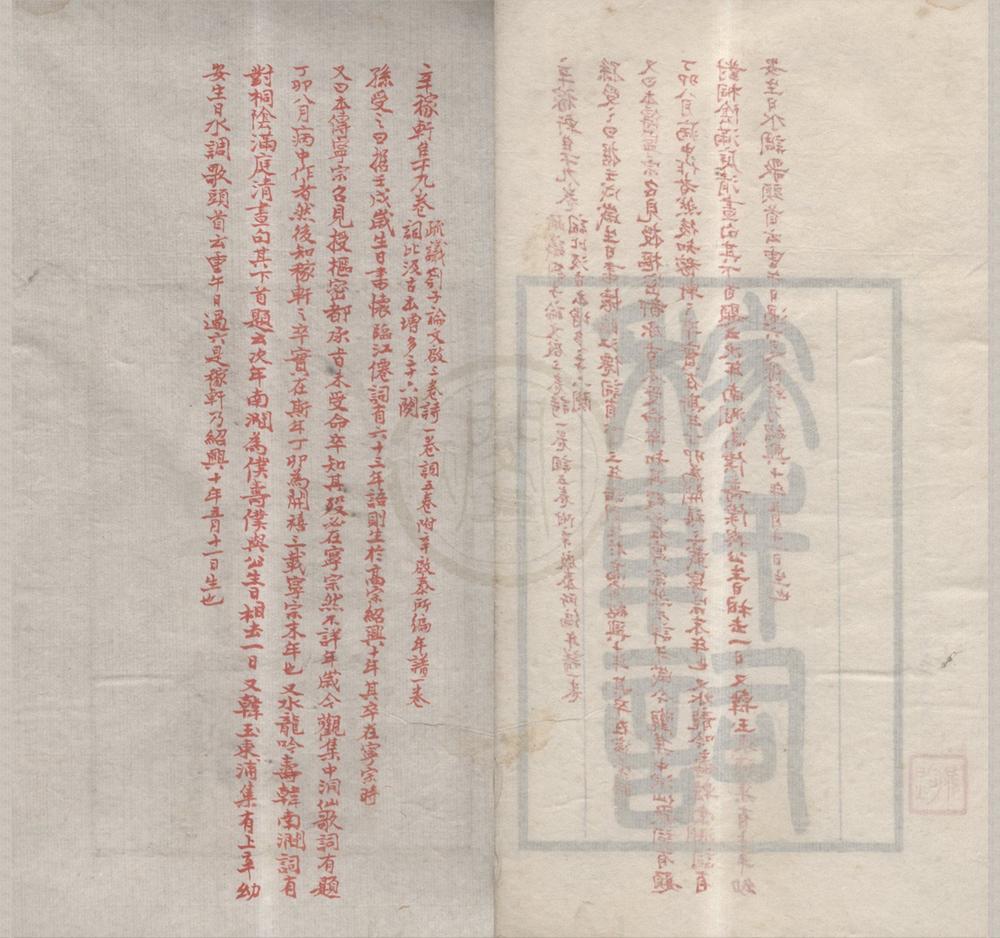 辛稼軒集十九卷
疏議劄子論文啟三卷詩一卷詞五卷附辛啟泰所編年譜一卷
詞比汲古本增多三十六闋
孫受之曰據壬戌歲生日書懷臨江僊詞有六十三年語則生於高宗紹興十年其卒在寧宗時
又曰本傳寧宗召見授樞密都承旨未受命卒知其歿必在寧宗然不詳年歲今觀集中洞仙歌詞有題
丁卯八月病中作者然後知稼軒之卒實在斯年丁卯為開禧三載寧宗末年也又水龍吟壽韓南澗詞有
對桐陰滿庭清晝句其下首題云次年南澗為僕壽僕與公生日相去一日又韓玉東浦集有上辛幼
安生日水調歌頭首云重午日過六是稼軒乃紹興十年五月十一日生也